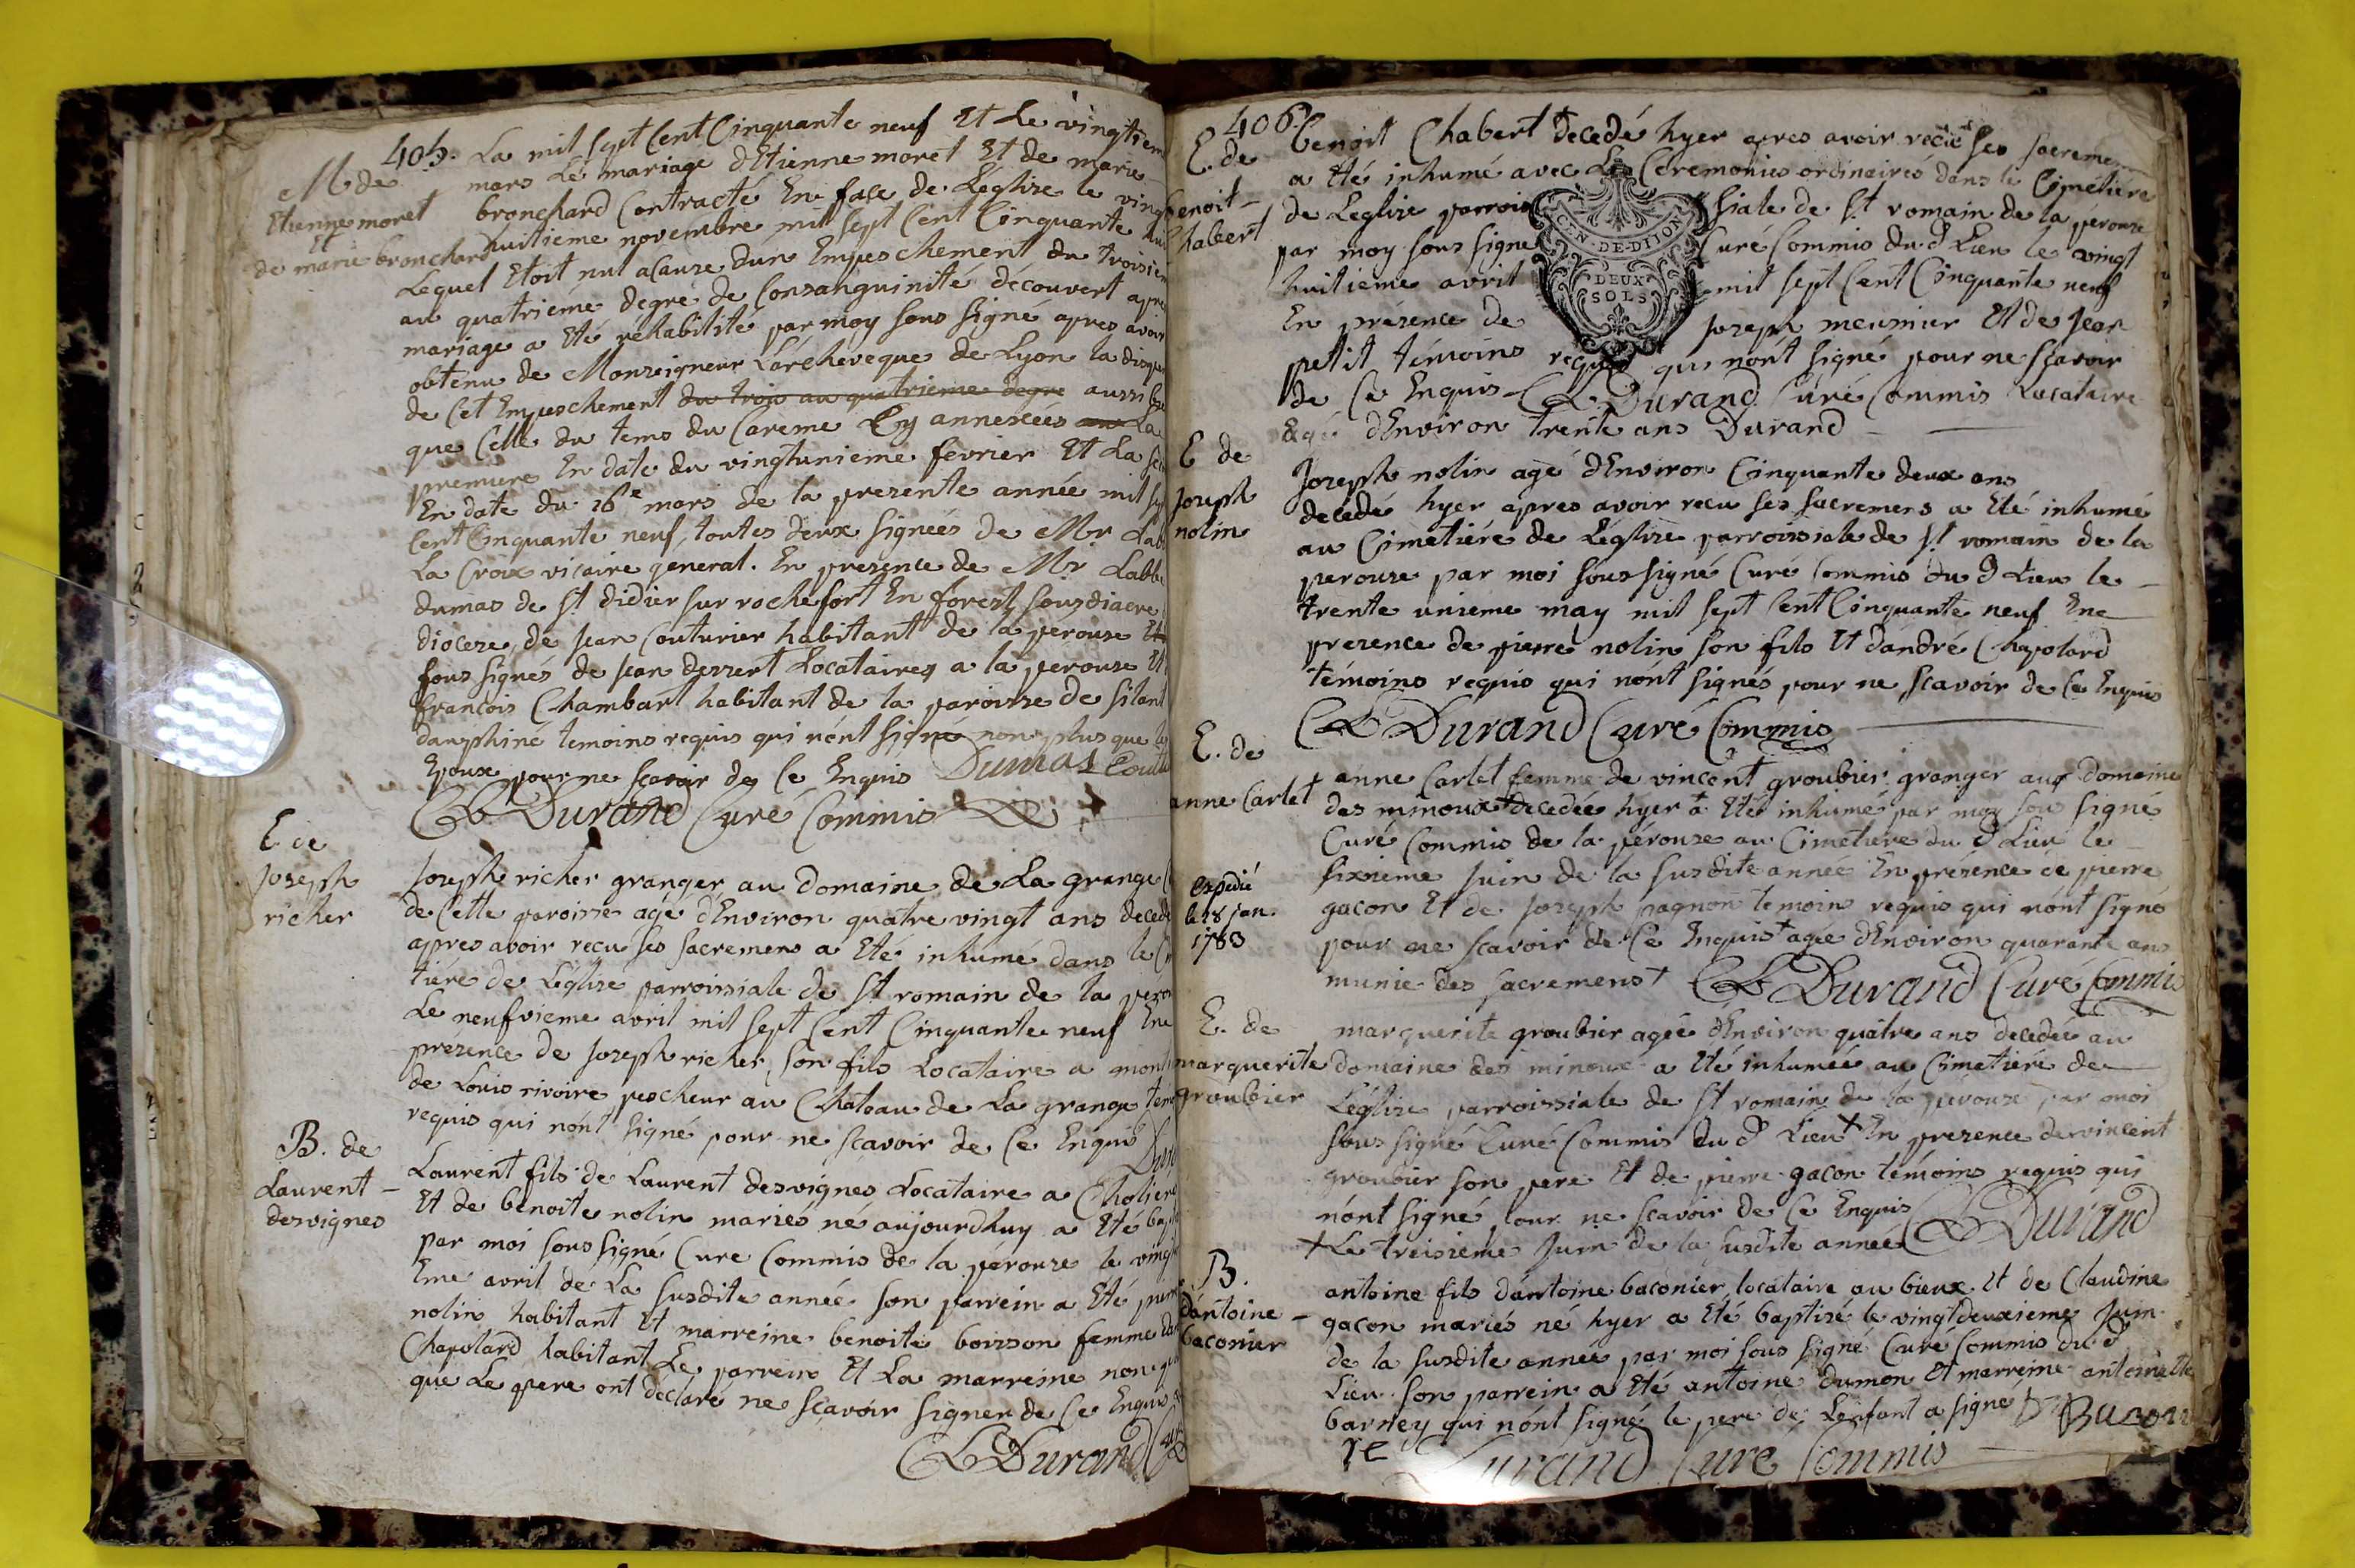 405.
M de
Etienne moret
Et
de marie bronchard
La mil sept Cent Cinquante neuf Et Le vingtiem
mars Le mariage dEtienne moret Et de marie
bronchard Contracté En face de Léglise le ving
huitieme novembre mil sept Cent Cinquante hui
Lequel Etoit nul acause dun Empeschement du troisiem
au quatrieme degré de Consanguinité découvert apre
mariage a Eté rehabilité par moy sous signé apres avoir
obtenu de Monseigneur Larcheveque de Lyon la dispen
de Cet Empeschement du trois au quatrieme degre aussi
que Celle du tems du Careme Cy annexées La
premiere En date du vingtunieme fevrier Et La
En date du 16e mars de la presente année mil sep
Cent Cinquante neuf, toutes deux signées de Mr Lab
La Croix vicaire general. En presence de Mr Labbé
dumas de St didier sur rochefort En forest sousdiacre
diocese, de jean Couturier habitant de la perouse Et
sous signés de jean dessert Locataires a la perouse Et
francois Chambart habitant de la paroisse de silant
dauphiné temoins requis qui nónt signé non plus que les
Epoux pour ne scavoir de Ce Enquis Dumas Coutu
Durand Curé Commis
E de
joseph
richer
Joseph richer granger au Domaine de La grange
de Cette paroisse agé dEnviron quatre vingt ans deced
apres avoir recu ses sacremens a Eté inhumé dans le Ci
tiére de Léglise parroissiale de St romain de la perou
Le neufvieme avril mil sept Cent Cinquante neuf En
presence de joseph richer son fils Locataire a mont
de Louis rivoire pescheur au Chateau de La grange tem
requis qui nónt signé pour ne scavoir de Ce Enquis Dur
B. de
Laurent –
desvignes
Laurent fils de Laurent desvignes Locataire a Choliere
Et de benoite nolin mariés né aujourdhuy a Eté bap
par moi sous signé Curé Commis de la pérouse le vingt
Eme avril de La susdite année son parrein a Eté pierre
nolin habitant Et marreine benoite boisson femme dan
Chapolard habitant Le parrein Et La marreine non plus
que Le pere ont declaré ne scavoir signer de Ce Enquis
Durand Curé
406.
E. de
benoit –
Chabert
benoit Chabert Decedé hyer apres avoir recu ses sacremens
a Eté inhumé avec Les Ceremonies ordinaires dans le Cimétiére
de Leglise parroissiale de St romain de la pérouse
par moy sous signé Curé Commis du d Lieu le vingt
huitieme avril mil sept Cent Cinquante neuf
En présence de joseph meunier Et de jean
petit témoins requis qui nónt signé pour ne scavoir
de Ce Enquis Durand Curé Commis Locataire
agé dEnviron trente ans Durand
GEN. DE DIJON
DEUX
SOLS
E de
joseph
nolin
Joseph nolin agé dEnviron Cinquante deux ans
decedé hyer apres avoir recu ses sacremens a Eté inhumé
au Cimetiére de Léglise parroissiale de St romain de la
perouse par moi sous signé Curé Commis du d Lieu le
trente unieme may mil sept Cent Cinquante neuf En
presence de pierre nolin son fils Et dandré Chapolard
témoins requis qui nónt signés pour ne scavoir de Ce Enquis
Durand Curé Commis
E. de
anne Carlet
anne Carlet femme de vincent groubier granger aux Domaine
des minoux + decedée hyer a Eté inhumé par moy sous signé
Curé Commis de la pérouse au Cimetiere du d Lieu le
sixnieme juin de la susdite année En présence de pierre
gacon Et de joseph pagnon temoins requis qui nónt signé
pour ne scavoir de Ce Enquis + agée dEnviron quarante ans
munie des sacremens + Durand Curé Commis
Expedié
le 28 jan.
1783
E. de
marguerite
groubier
marguerite groubier agée dEnviron quatre ans decedée au
domaine des minoux a Eté inhumée au Cimetiére de
Léglise parroissiale de St romain de la pérouse par moi
sous signé Curé Commis du d Lieu + En presence de vincent
groubier son pere Et de pierre gacon témoins requis qui
nónt signé pour ne scavoir de Ce Enquis Durand
+ Le treisieme Juin de la susdite année
B.
dantoine –
baconier
antoine fils dantoine baconier locataire au bieux Et de Claudine
gacon mariés né hyer a Eté baptisé le vingtdeuxieme Juin
de la susdite année par moi sous signé Curé Commis du d
Lieu son parrein a Eté antoine dumon Et marreine antoinette
barney qui nónt signé le pere de Lenfant a signé
Durand Curé Commis